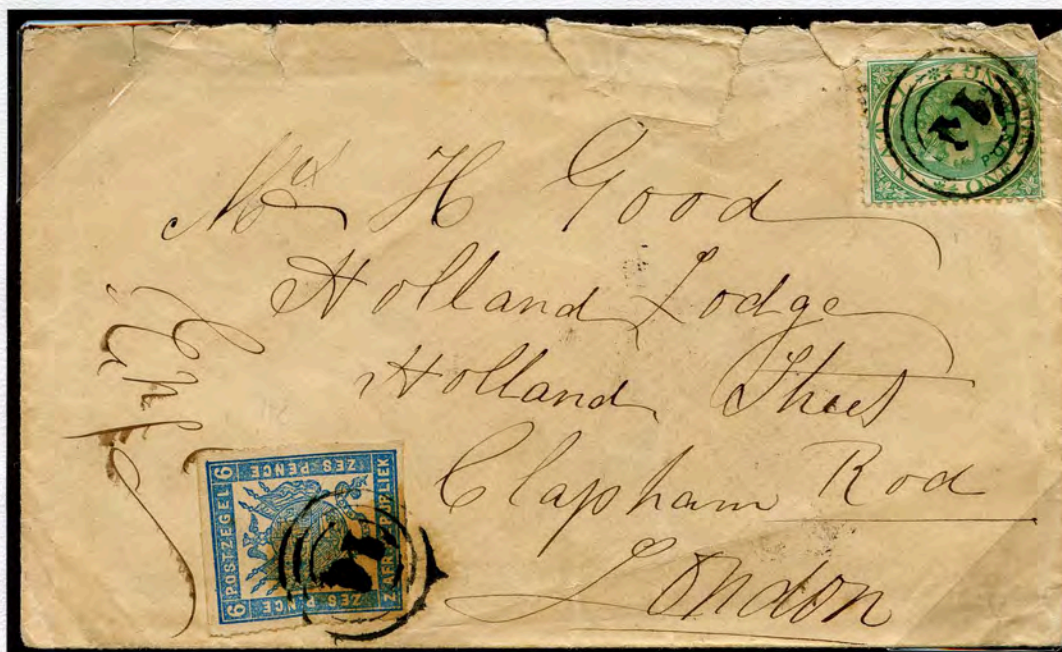 NATAL
ONE SHILLING
Mrs H Good
Holland Lodge
Holland Street
Clapham Rod
London
6 POSTZEGEL 6
ZES PENCE
Z. AFR. REPUBLIEK
ZES PENCE